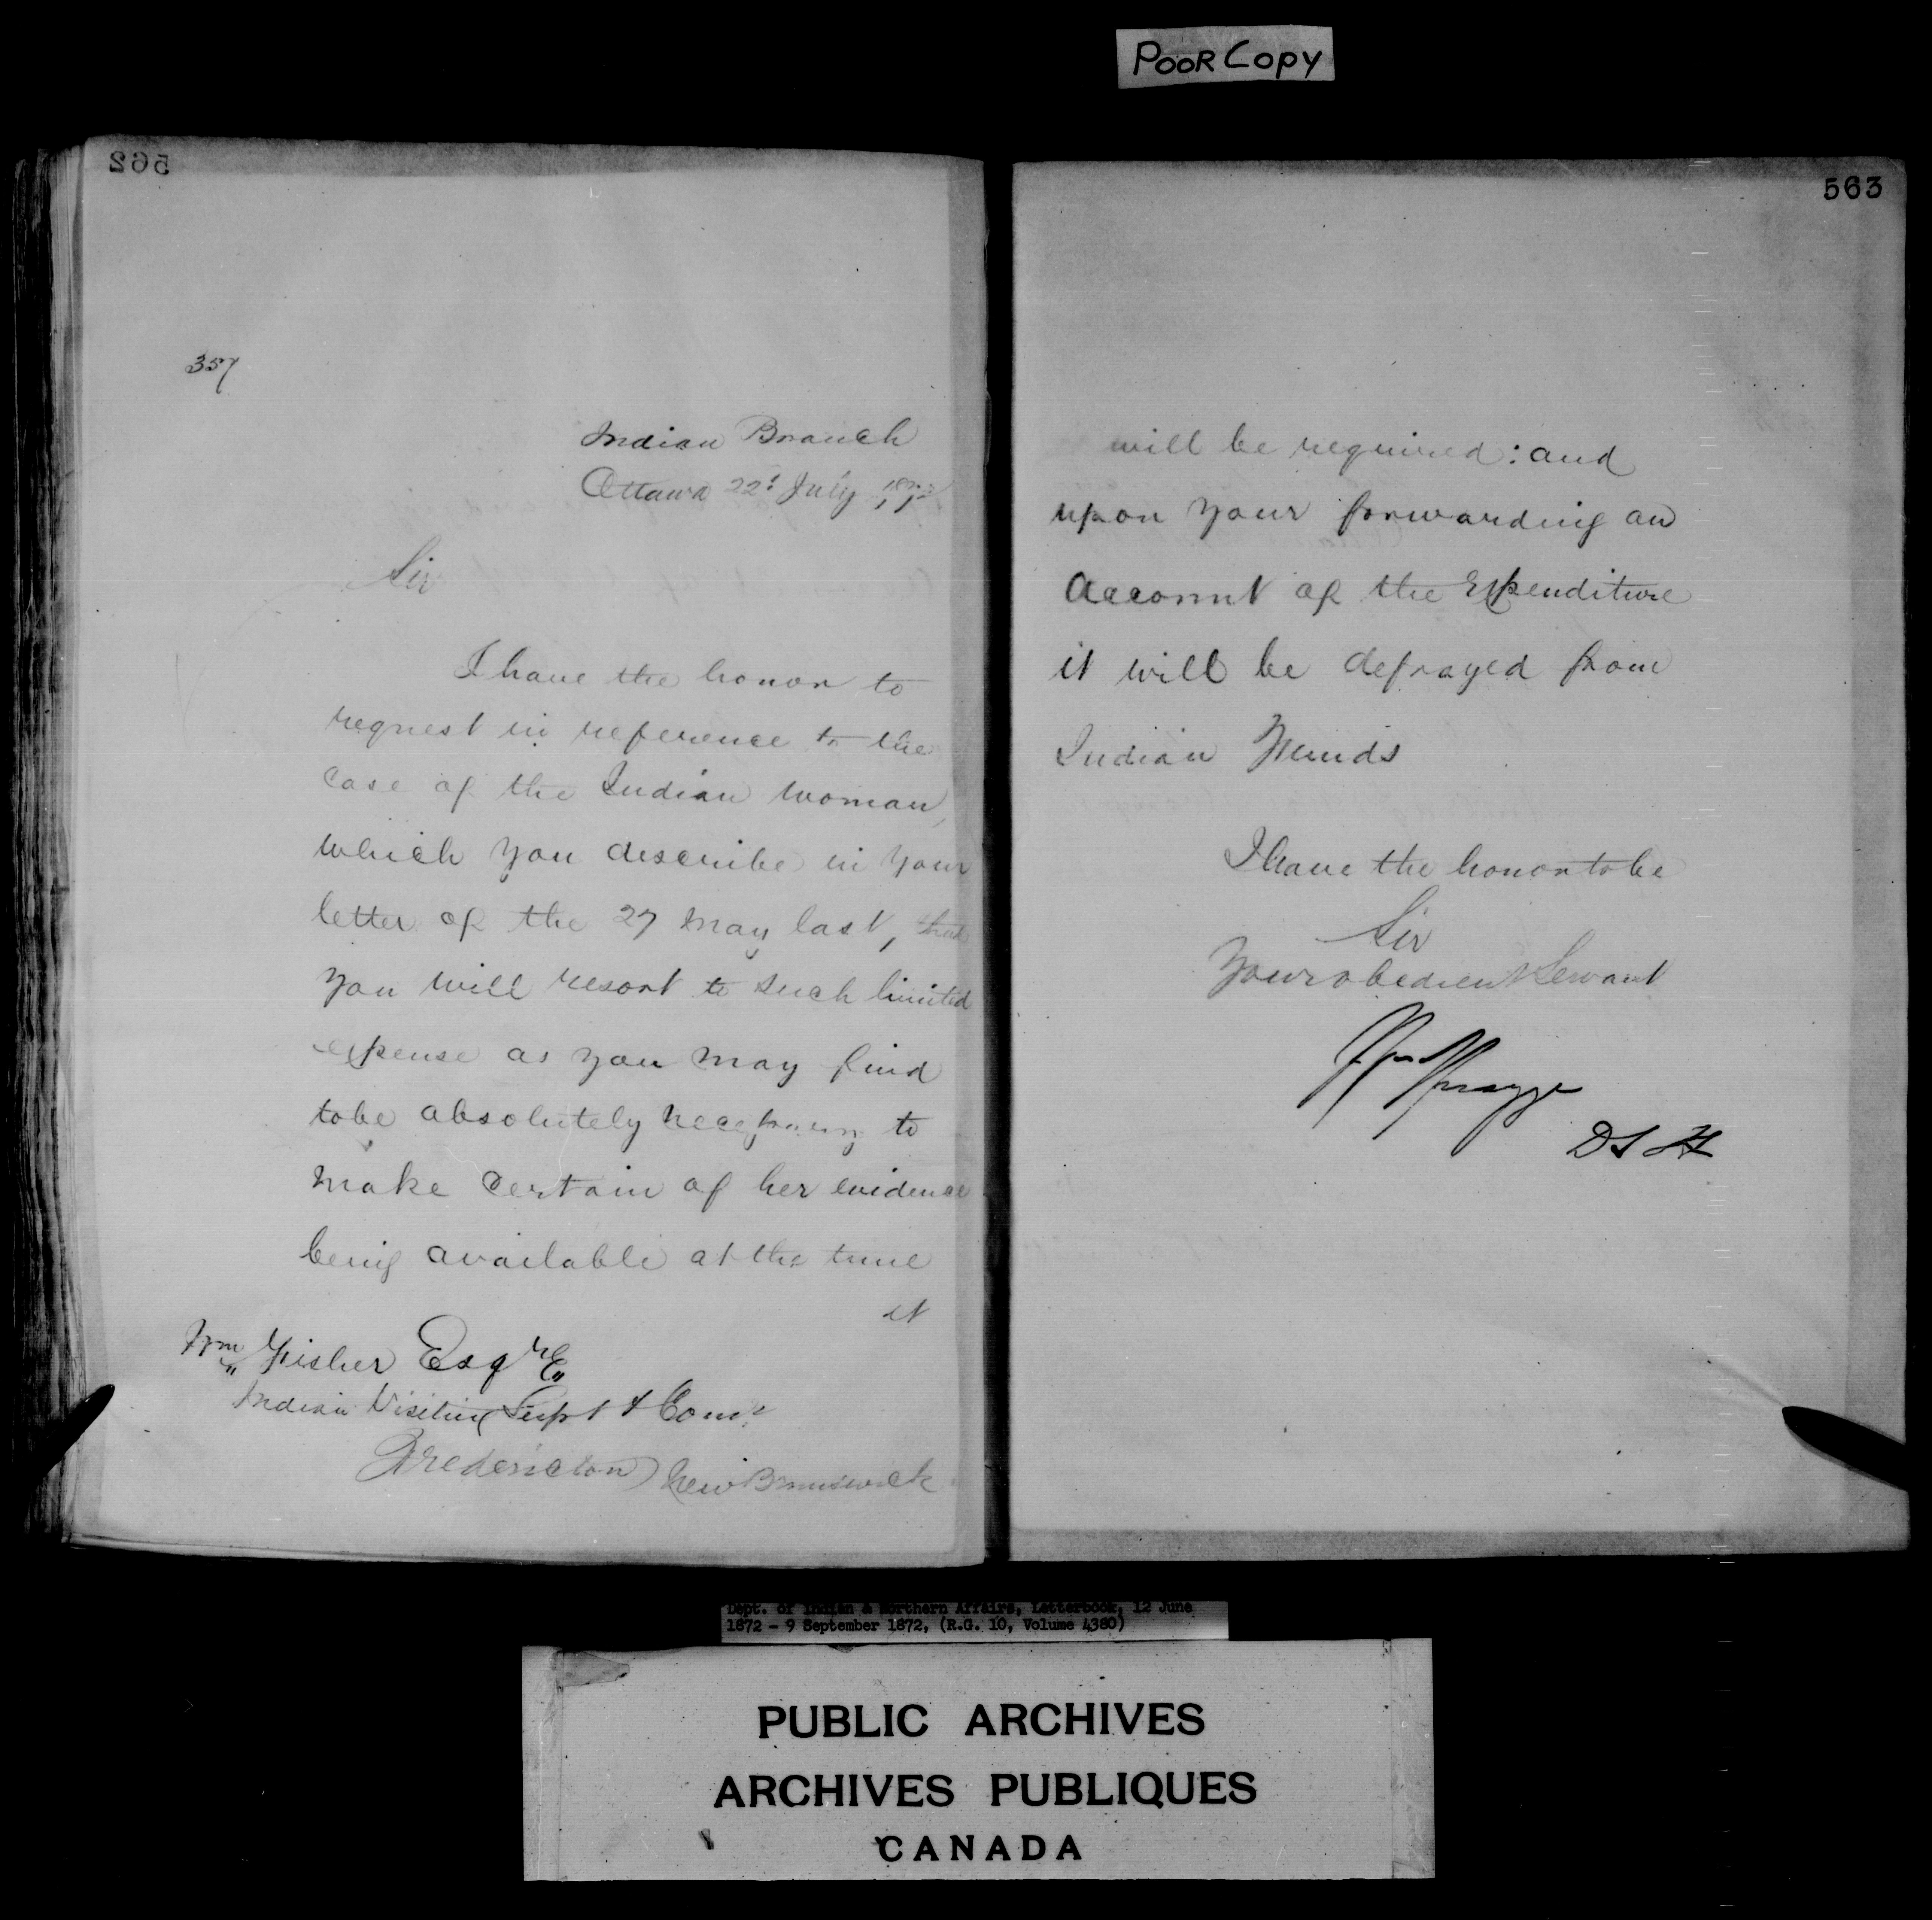 POOR COPY
562
357
Indian Branch
Ottawa 22d July 1872
Sir
I have the honor to
request in reference to the
case of the Indian woman,
which you describe in your
letter of the 27 May last, that
you will resort to such limited
expense as you may find
to be absolutely necessary to
make certain of her evidence
being available at the time
it
Wm Fisher Esqre
Indian Visiting Supt & Comr
Fredericton New Brunswick
563
will be required: and
upon your forwarding an
account of the Expenditure
it will be defrayed from
Indian Funds
I have the honor to be
Sir
Your obedient Servant
Wm Spragge
DS
Dept. of Indian & Northern Affairs, Letterbook, 12 June
1872 - 9 September 1872, (R.G. 10, Volume 4380)
PUBLIC ARCHIVES
ARCHIVES PUBLIQUES
CANADA